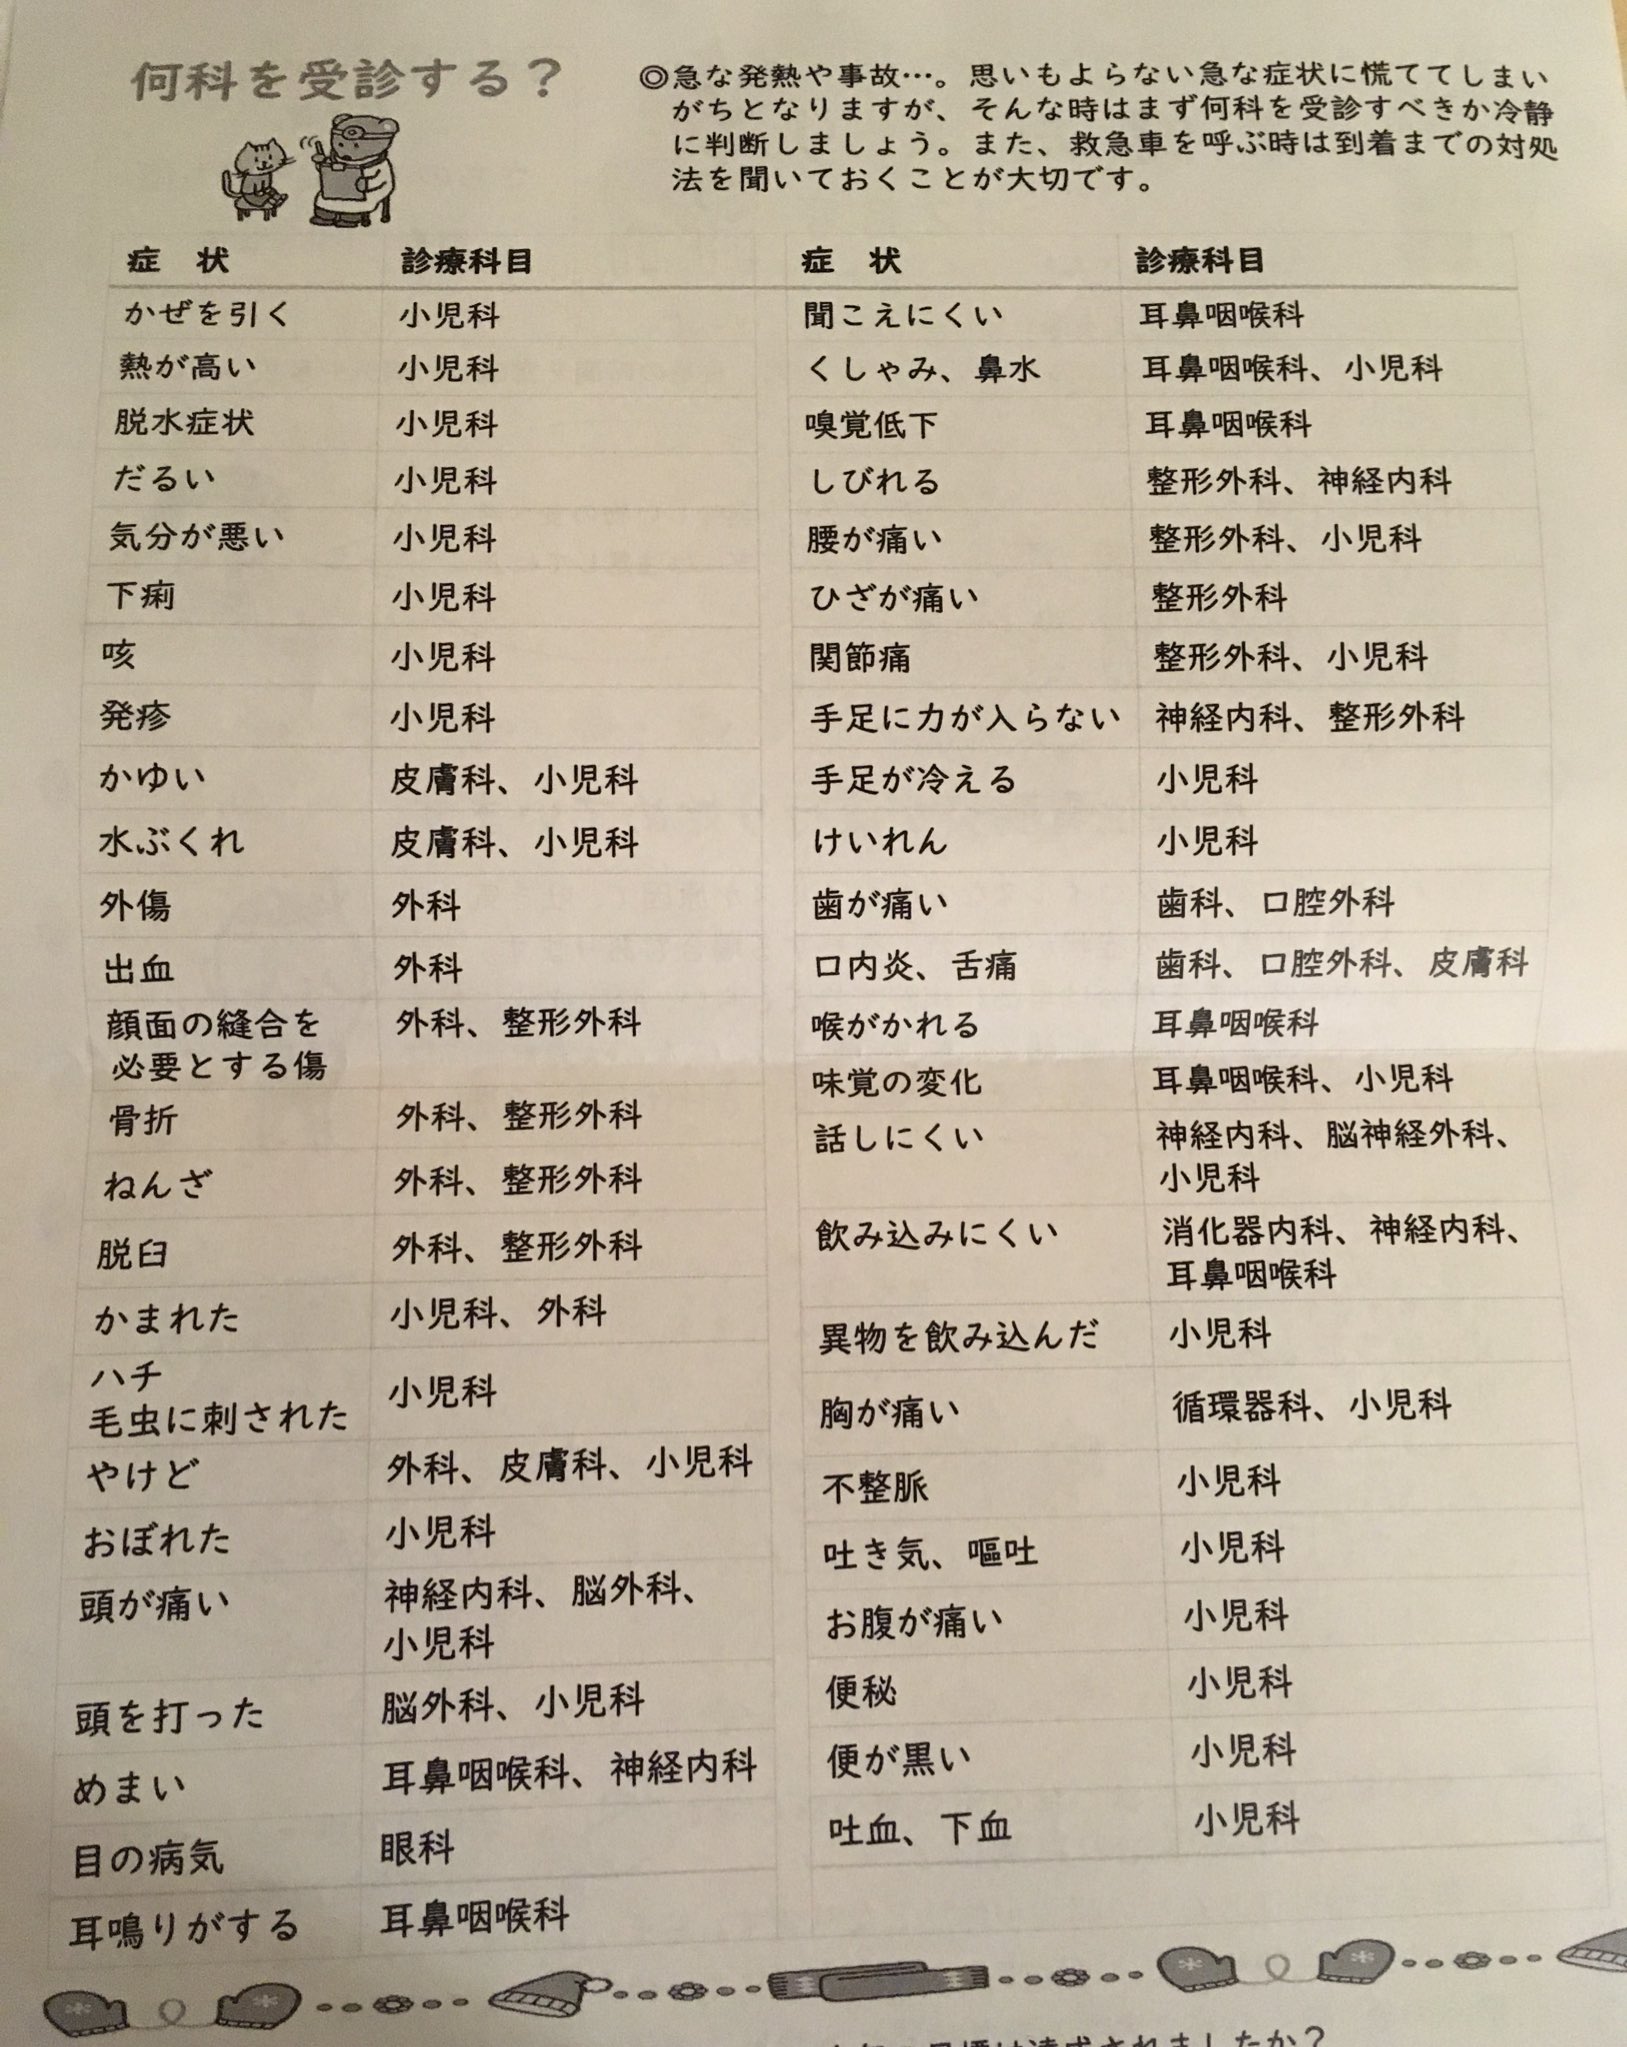 何科を受診する？
◎急な発熱や事故…。思いもよらない急な症状に慌ててしまい
がちとなりますが、そんな時はまず何科を受診すべきか冷静
に判断しましょう。また、救急車を呼ぶ時は到着までの対処
法を聞いておくことが大切です。
症　状　診療科目
かぜを引く　小児科
熱が高い　小児科
脱水症状　小児科
だるい　小児科
気分が悪い　小児科
下痢　小児科
咳　小児科
発疹　小児科
かゆい　皮膚科、小児科
水ぶくれ　皮膚科、小児科
外傷　外科
出血　外科
顔面の縫合を　外科、整形外科
必要とする傷
骨折　外科、整形外科
ねんざ　外科、整形外科
脱臼　外科、整形外科
かまれた　小児科、外科
ハチ
毛虫に刺された　小児科
やけど　外科、皮膚科、小児科
おぼれた　小児科
頭が痛い　神経内科、脳外科、
小児科
頭を打った　脳外科、小児科
めまい　耳鼻咽喉科、神経内科
目の病気　眼科
耳鳴りがする　耳鼻咽喉科
症　状　診療科目
聞こえにくい　耳鼻咽喉科
くしゃみ、鼻水　耳鼻咽喉科、小児科
嗅覚低下　耳鼻咽喉科
しびれる　整形外科、神経内科
腰が痛い　整形外科、小児科
ひざが痛い　整形外科
関節痛　整形外科、小児科
手足に力が入らない　神経内科、整形外科
手足が冷える　小児科
けいれん　小児科
歯が痛い　歯科、口腔外科
口内炎、舌痛　歯科、口腔外科、皮膚科
喉がかれる　耳鼻咽喉科
味覚の変化　耳鼻咽喉科、小児科
話しにくい　神経内科、脳神経外科、
小児科
飲み込みにくい　消化器内科、神経内科、
耳鼻咽喉科
異物を飲み込んだ　小児科
胸が痛い　循環器科、小児科
不整脈　小児科
吐き気、嘔吐　小児科
お腹が痛い　小児科
便秘　小児科
便が黒い　小児科
吐血、下血　小児科
は達成されましたか？